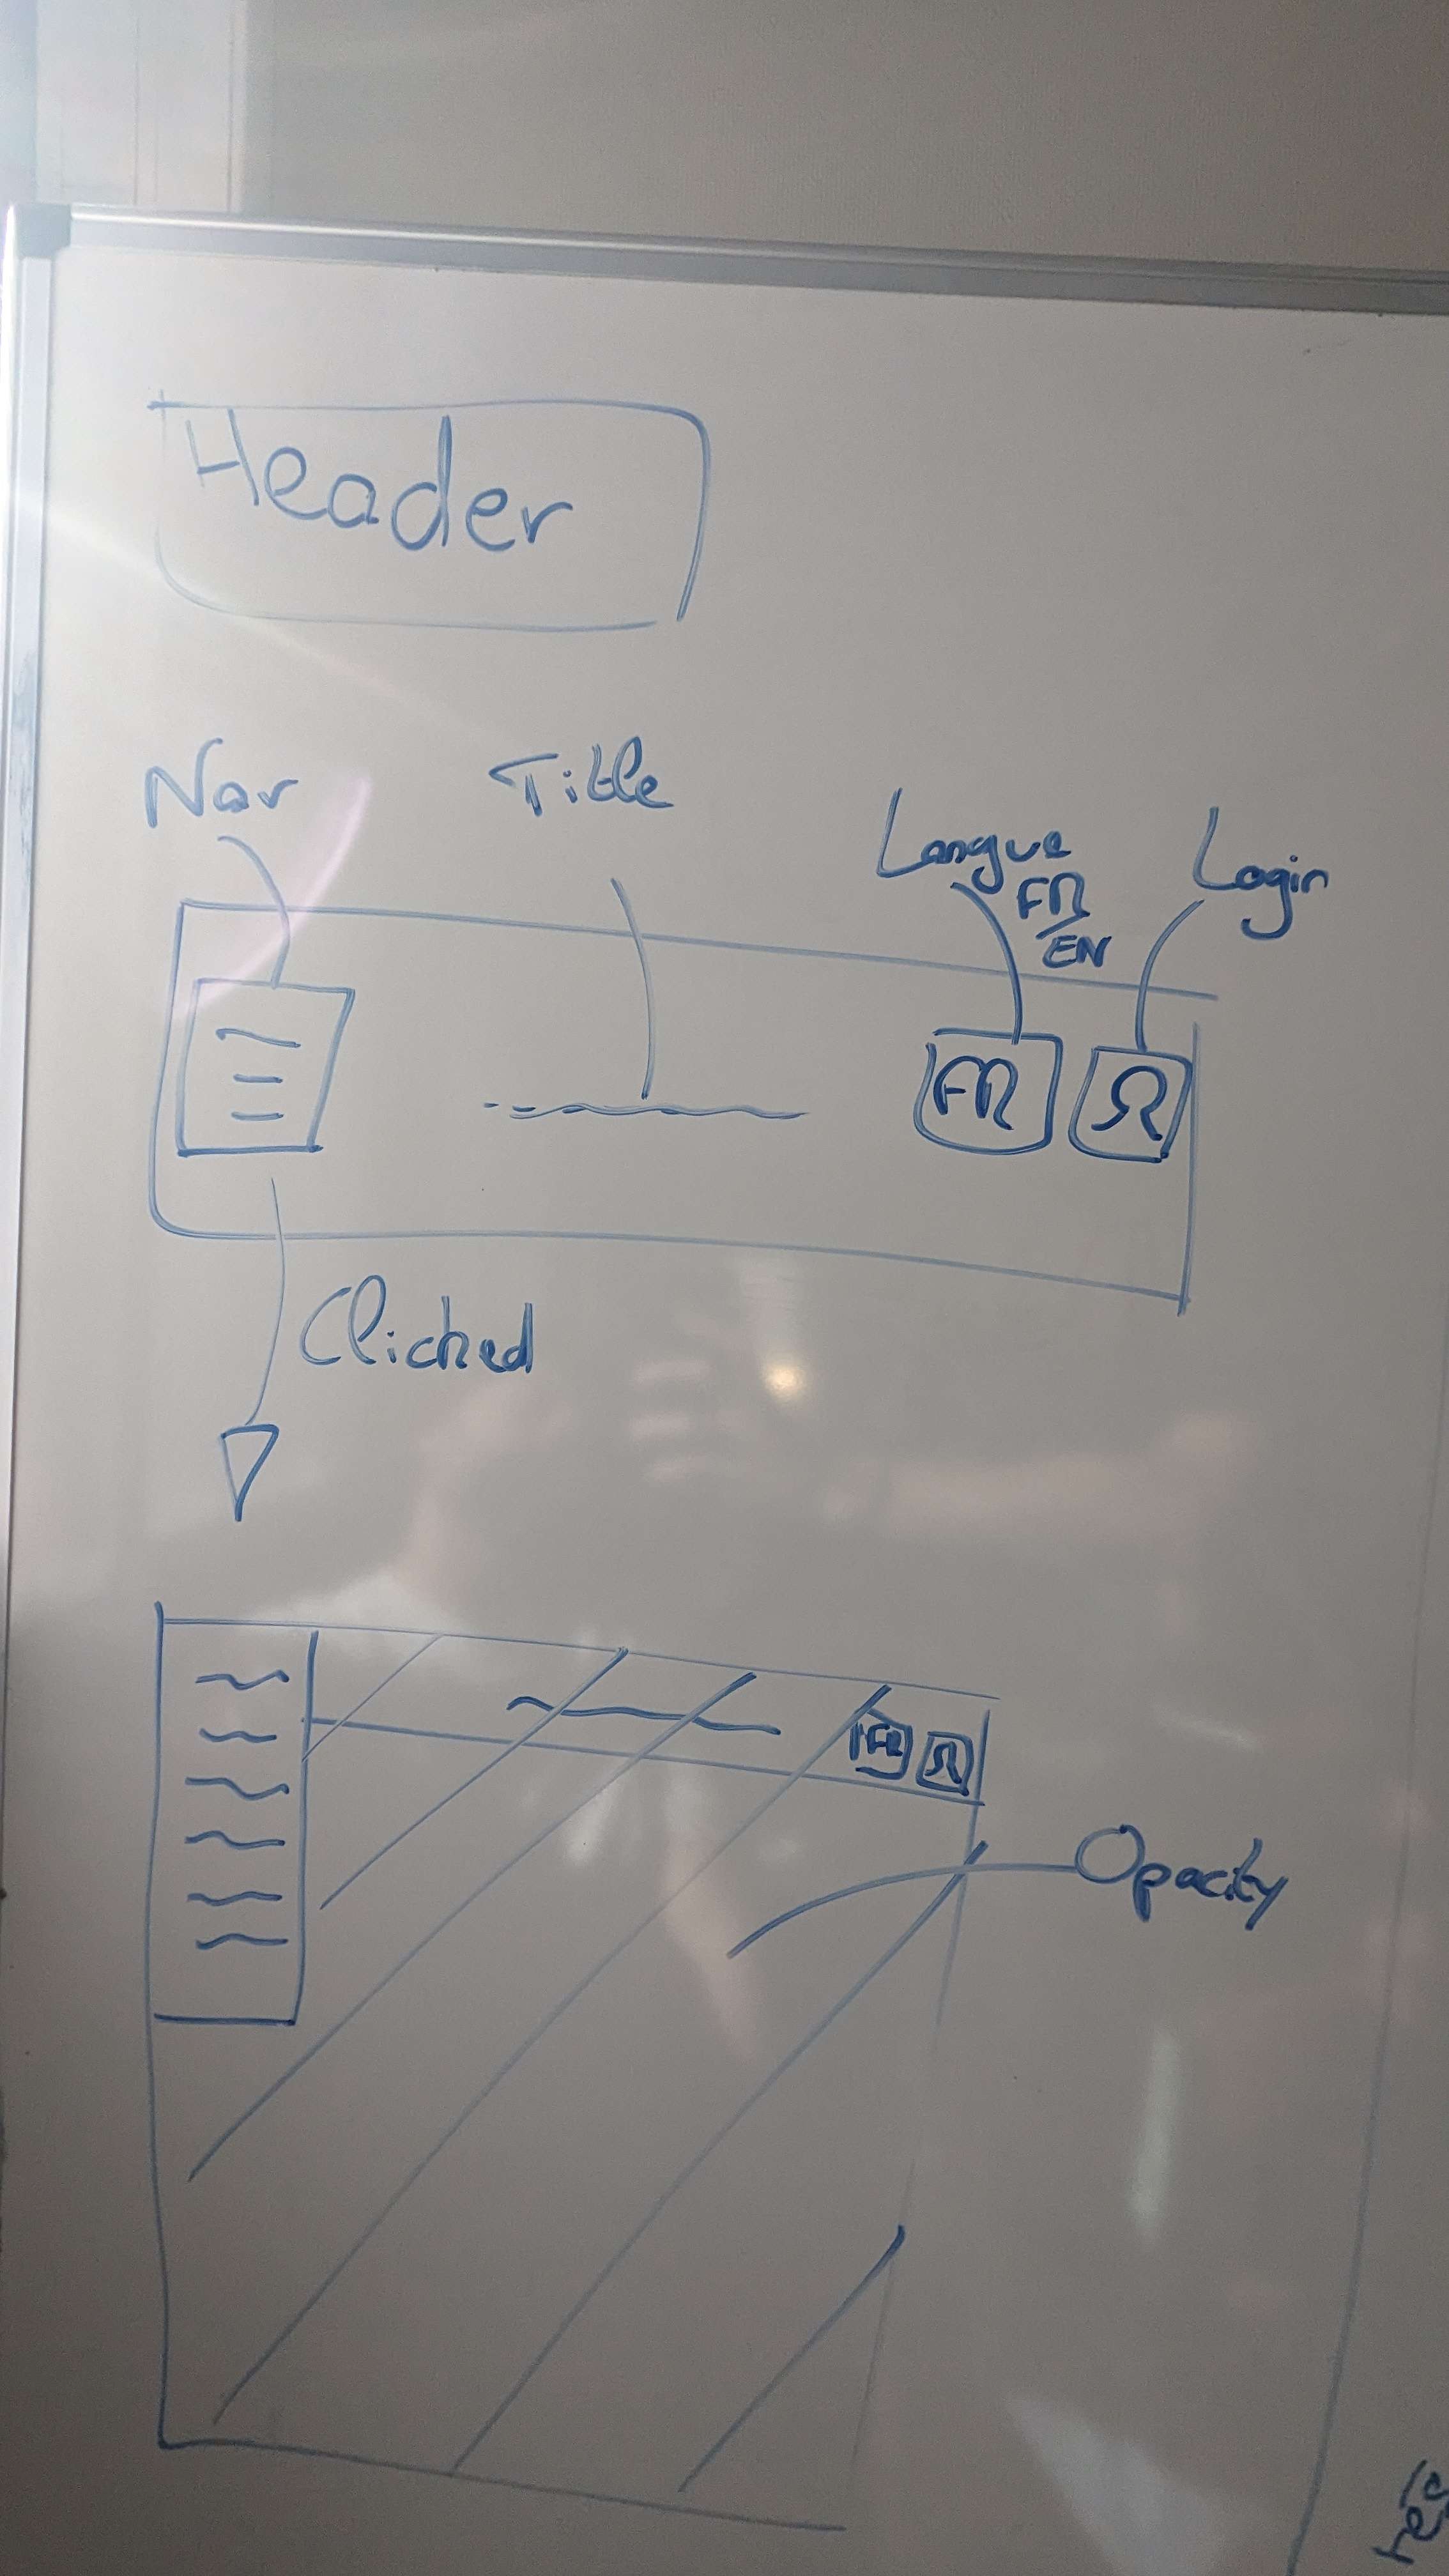 Header
Nav
Title
Langue
FR
/
EN
Login
FR
Clicked
FR
Opacity